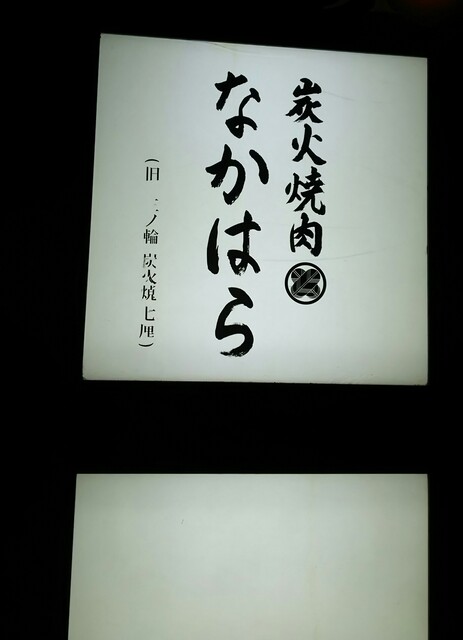 炭火焼肉
なかはら
(旧 三ノ輪 炭火焼 七厘)